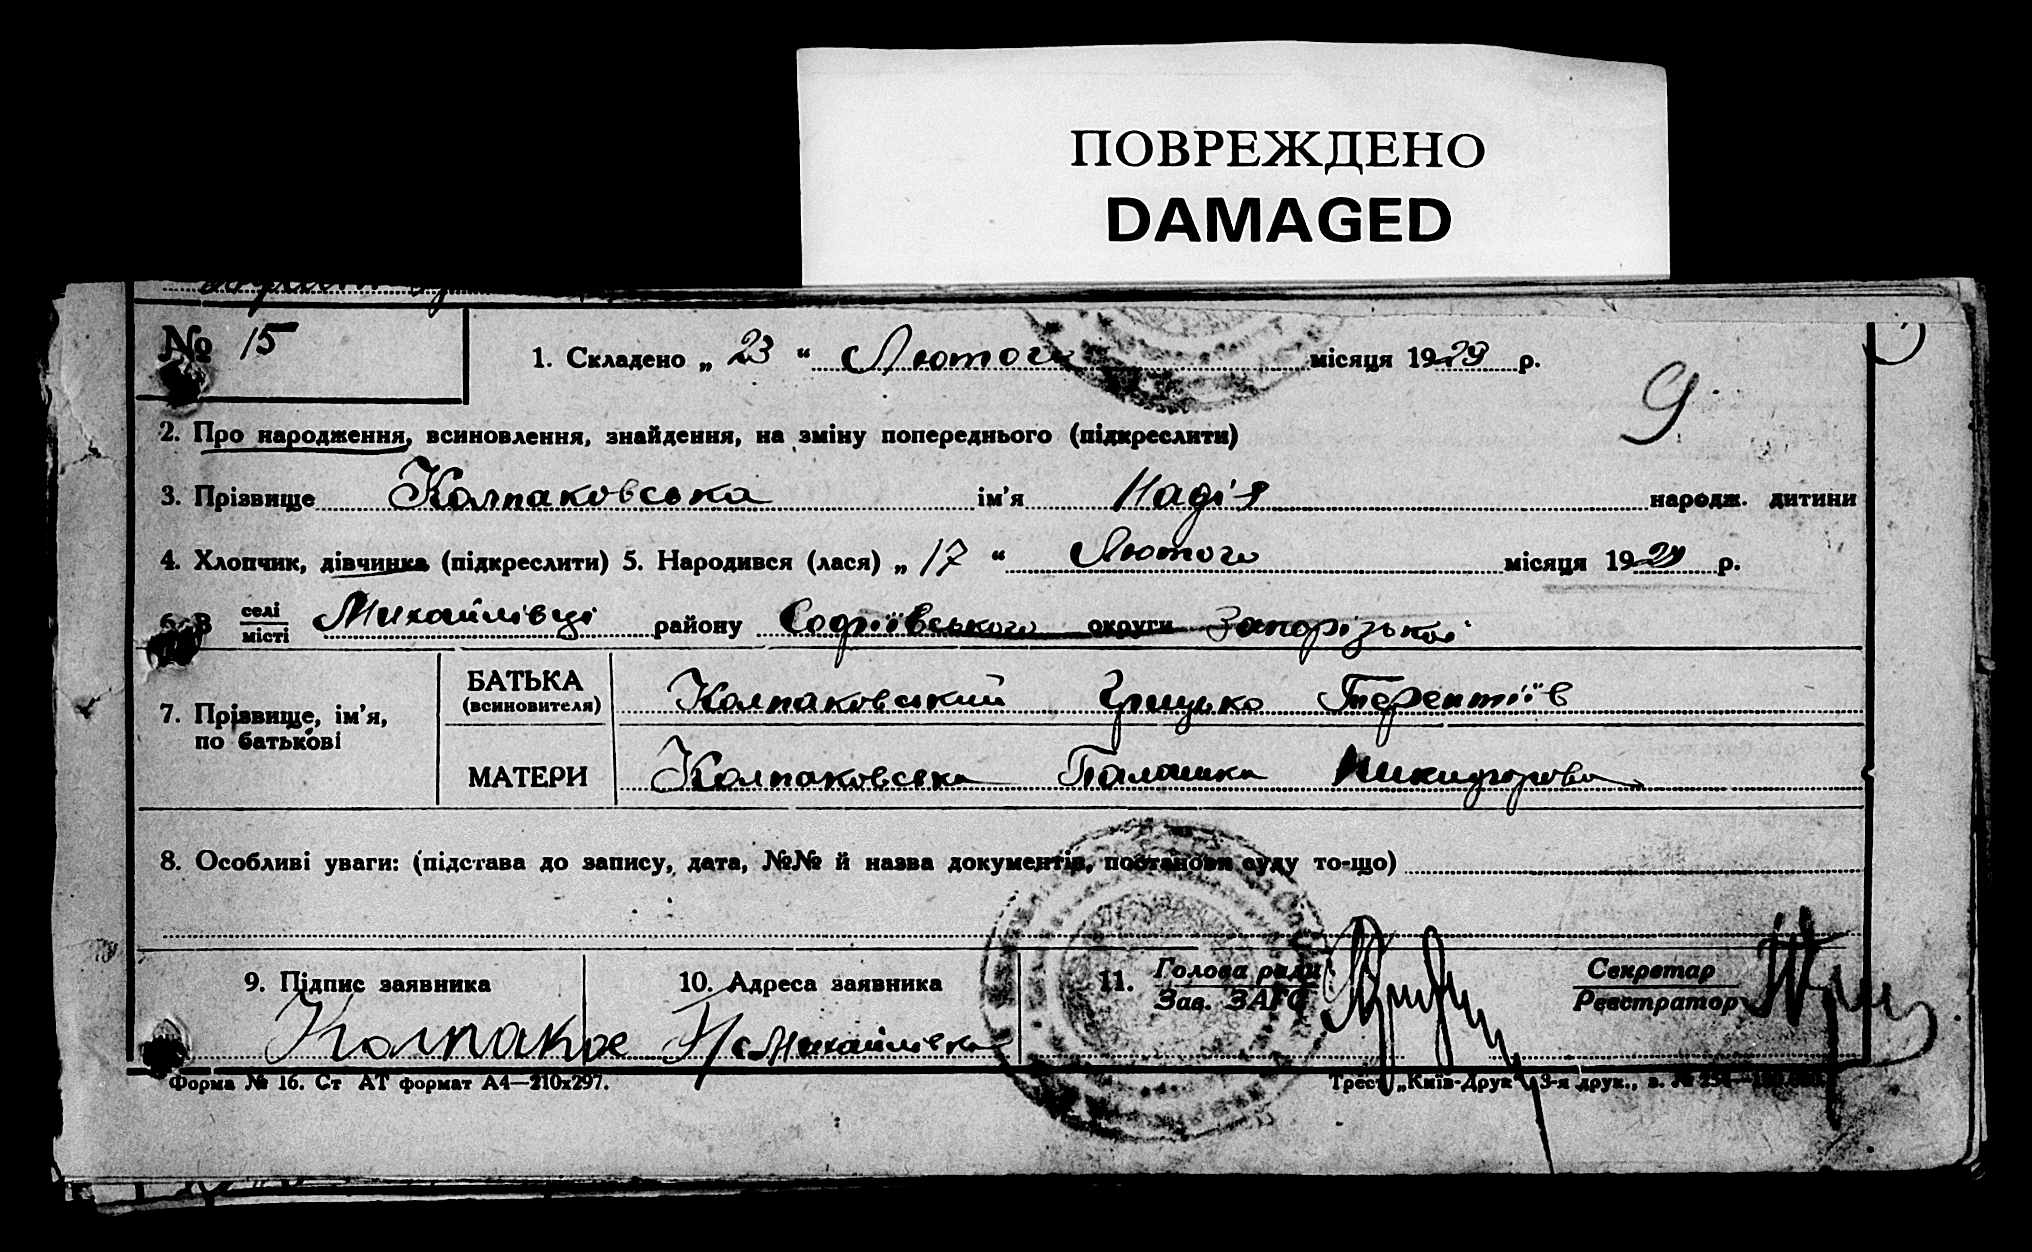 ПОВРЕЖДЕНО
DAMAGED
№ 15
1. Складено „ 23 “ Лютого місяця 1929 р.
9
2. Про народження, всиновлення, знайдення, на зміну попереднього (підкреслити)
3. Прізвище Колпаковська ім’я Надія народж. дитини
4. Хлопчик, дівчинка (підкреслити) 5. Народився (лася) „ 17 “ Лютого місяця 1929 р.
6. В селі Михайлівці району Софіївського округи Запорізької
місті
БАТЬКА Колпаковський Грицько Терентіїв
(всиновителя)
7. Прізвище, ім’я,
по батькові
МАТЕРИ Колпаковська Палашка Никифорова
8. Особливі уваги: (підстава до запису, дата, №№ й назва документів, постанови суду то-що)
9. Підпис заявника 10. Адреса заявника 11. Голова ради Секретар
Зав. ЗАГС Реєстратор
Колпаков с Михайлівка
Форма № 16. Ст АТ формат А4—210х297. Трест „Київ-Друк“ 3-я друк., з. №